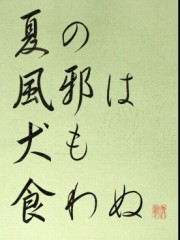 夏の
風邪は
犬も
食わぬ